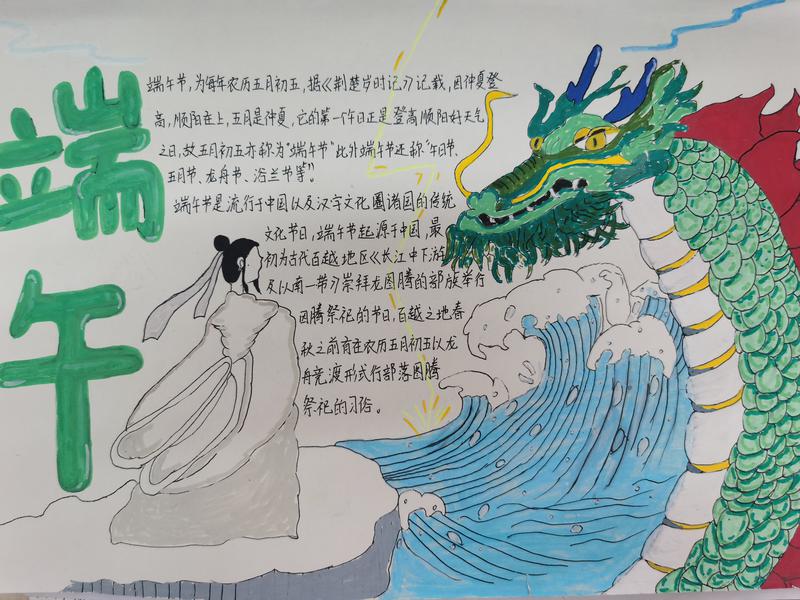 端午
端午节,为每年农历五月初五,据《荆楚岁时记》记载,因仲夏登
高,顺阳在上,五月是仲夏,它的第一个午日正是登高顺阳好天气
之日,故五月初五亦称为"端午节"此外端午节还称"午日节、
五月节、龙舟节、浴兰节等"。
端午节是流行于中国以及汉字文化圈诸国的传统
文化节日,端午节起源于中国,最
初为古代百越地区《长江中下游
及以南一带》崇拜龙图腾的部族举行
图腾祭祀的节日,百越之地春
秋之前有在农历五月初五以龙
舟竞渡形式行部落图腾
祭祀的习俗。